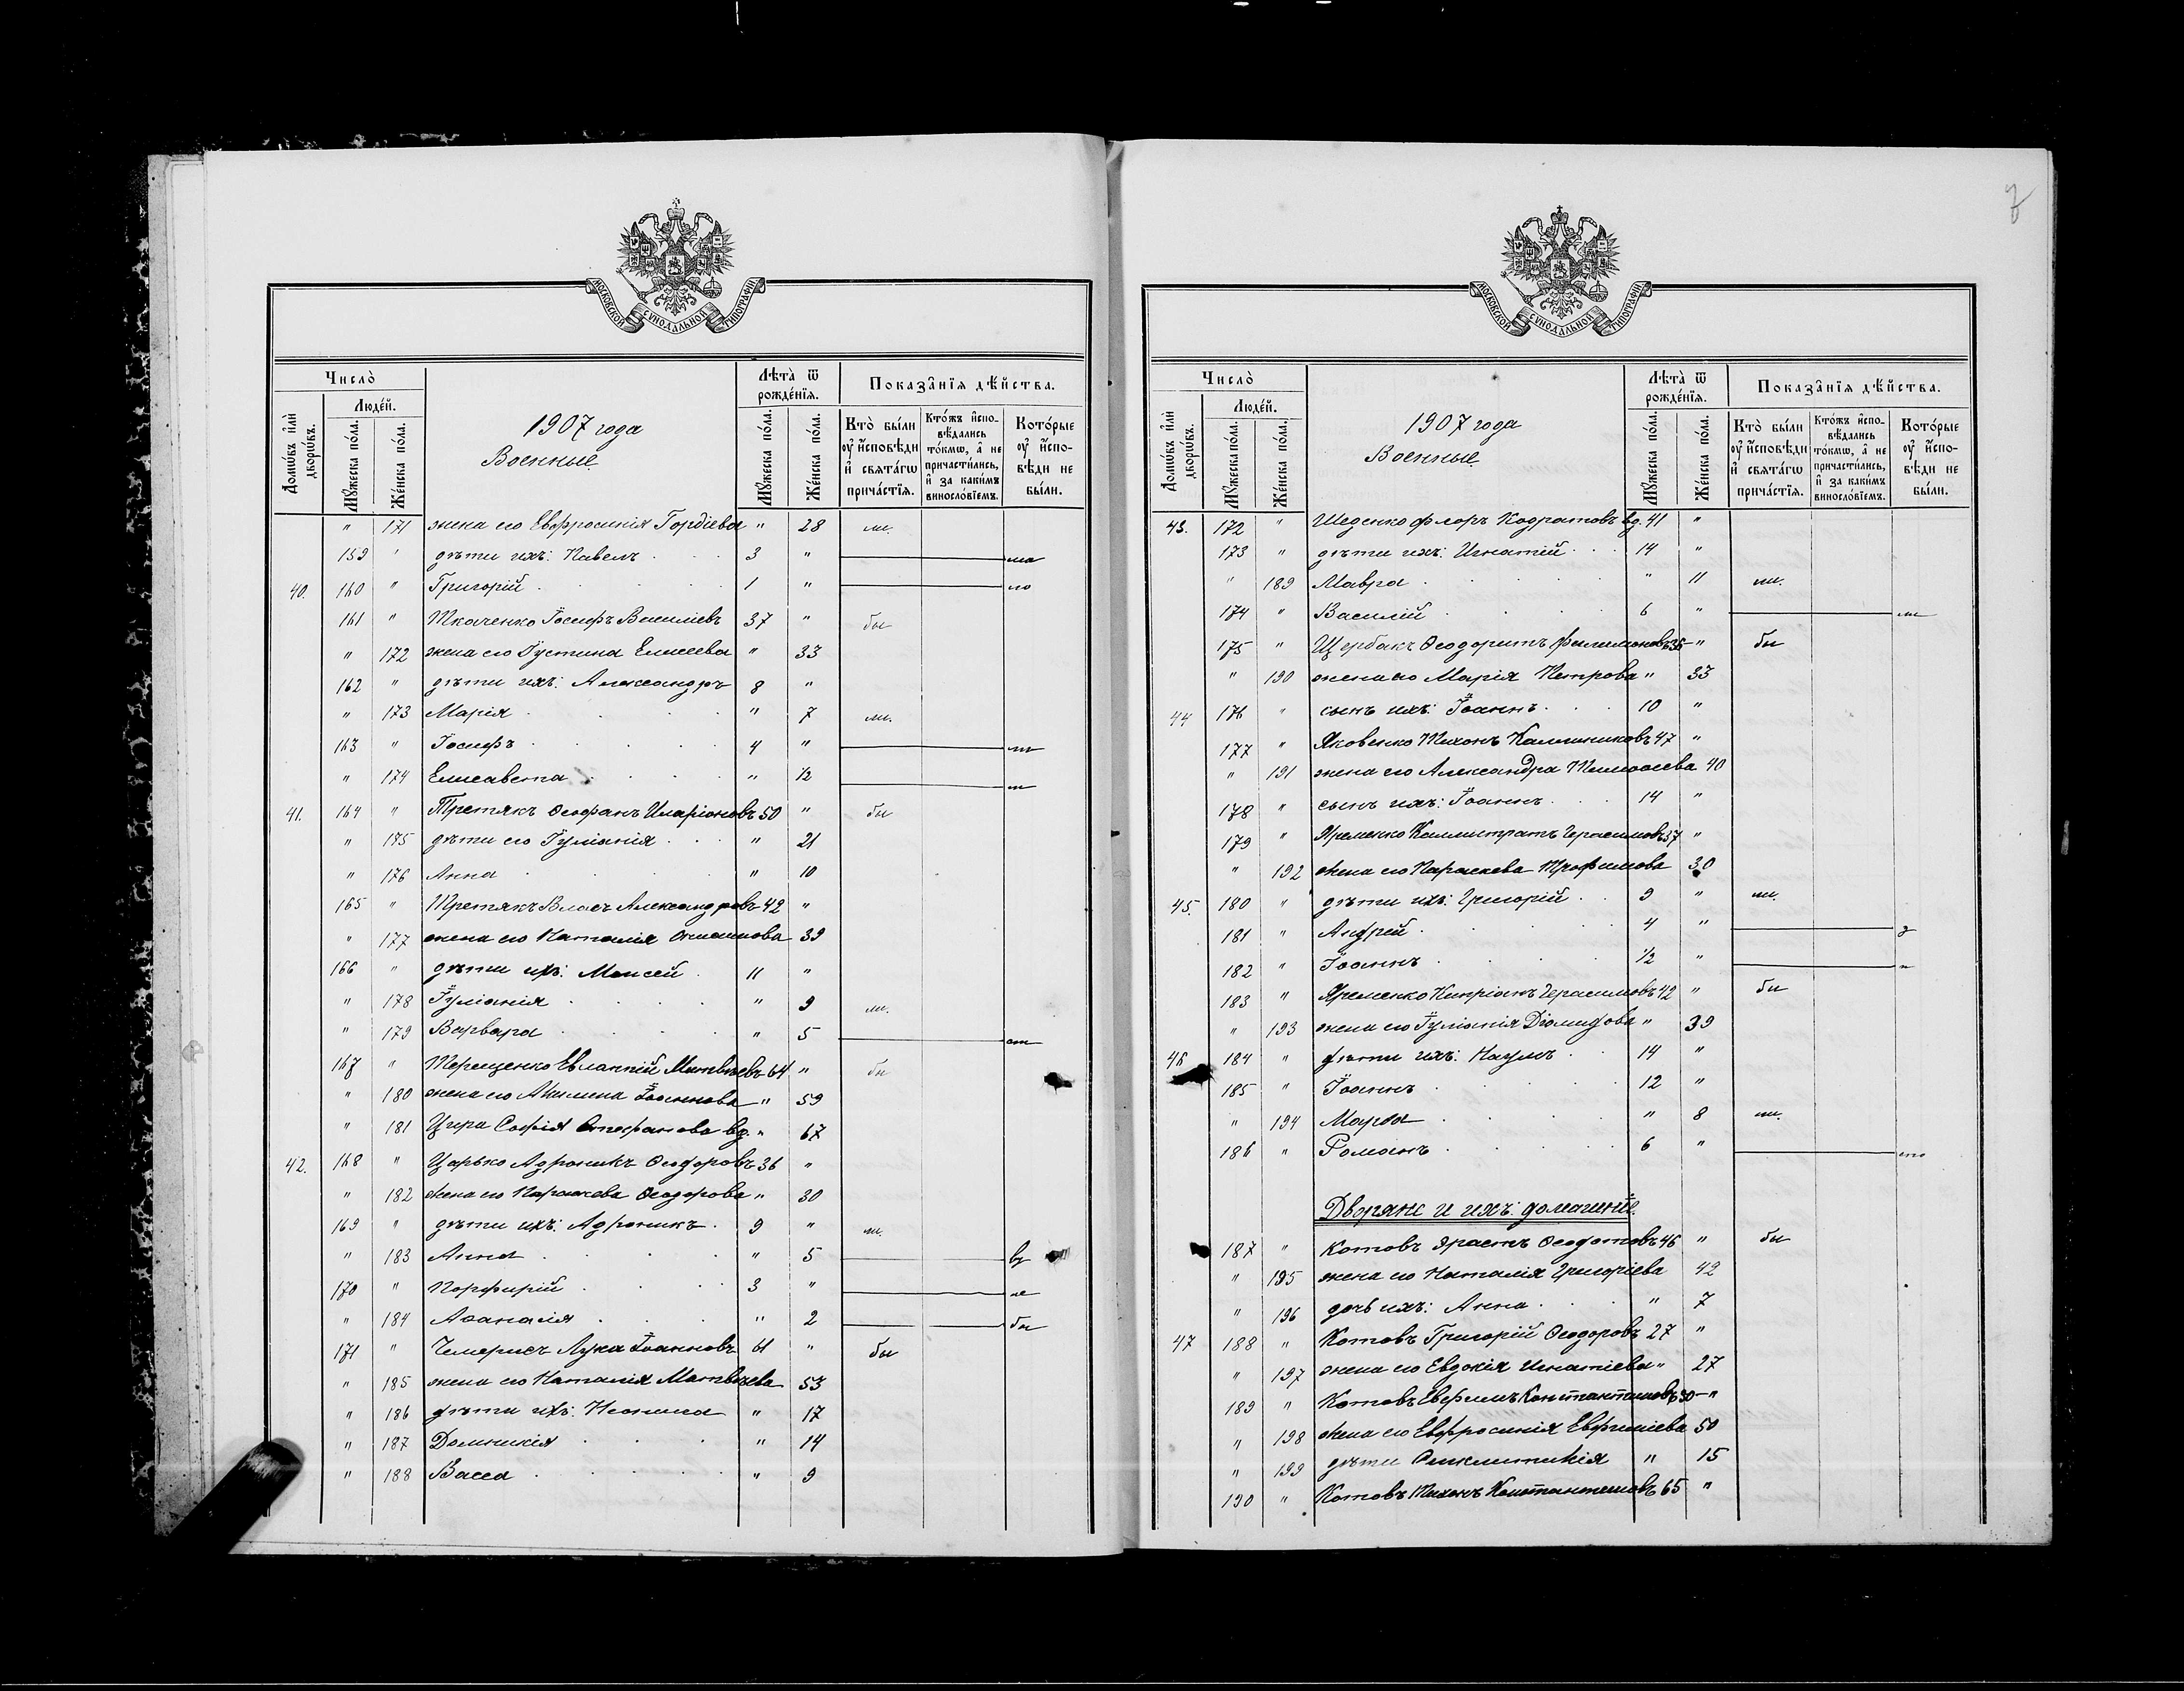 МОСКОВСКОЙ СѴНОДАЛЬНОЙ ТИПОГРАФІИ
Число̀
Людей.
Домѡвъ и҆лѝ дворѡвъ.
Мꙋжеска по́ла.
Же́нска по́ла.
1907 года
Военные
Лѣта̀ ѿ рожде́нїѧ.
Мꙋжеска по́ла.
Же́нска по́ла.
Показа̂нїѧ дѣ́йства.
Кто̀ бы́ли оу҆ и҆сповѣди и҆ свѧта́гѡ прича́стїѧ.
Кто́жъ и҆спо-вѣдались то́кмѡ, а҆ не причасти́лись, и҆ за каки́мъ винословїемъ.
Кото́рые оу҆ и҆спо-вѣди не бы́ли.
" 171 жена его Евфросинія Гордіева " 28
159 " дѣти ихъ: Павелъ 3 "
40. 160 " Григорій 1 "
161 " Ткаченко Іосифъ Василіевъ 37 " бы
" 172 жена его Іустина Елисеева " 33
162 " дѣти ихъ: Александръ 8 "
" 173 Марія " 7 ли.
163 " Іосифъ 4 "
" 174 Елисавета " 1/2
41. 164 " Третякъ Ѳеофанъ Иларіоновъ 50 " бы
" 175 дѣти его Іуліанія " 21
" 176 Анна " 10
165 " Третякъ Власъ Александровъ 42 "
" 177 жена его Наталія Онисимова 39
166 " дѣти ихъ: Моисей 11 "
" 178 Іуліанія " 9 ли.
" 179 Варвара " 5
167 " Терещенко Евлампій Матвѣевъ 64 " бы
" 180 жена его Акилина Іоаннова " 59
" 181 Цира Софія Стефанова вд. " 67
42. 168 " Царько Адроникъ Ѳеодоровъ 36 "
" 182 жена его Параскева Ѳеодорова " 30
169 " дѣти ихъ: Адроникъ 9 " ли.
" 183 Анна " 5
170 " Порфирій 3 " не
" 184 Аѳанасія " 2 бы
171 " Чемерисъ Лука Іоанновъ 61 " бы
" 185 жена его Наталія Матвѣева 53
" 186 дѣти ихъ: Неонила " 17
" 187 Домникія " 14
" 188 Васса " 9
МОСКОВСКОЙ СѴНОДАЛЬНОЙ ТИПОГРАФІИ
Число̀
Людей.
Домѡвъ и҆лѝ дворѡвъ.
Мꙋжеска по́ла.
Же́нска по́ла.
1907 года
Военные
Лѣта̀ ѿ рожде́нїѧ.
Мꙋжеска по́ла.
Же́нска по́ла.
Показа̂нїѧ дѣ́йства.
Кто̀ бы́ли оу҆ и҆сповѣди и҆ свѧта́гѡ прича́стїѧ.
Кто́жъ и҆спо-вѣдались то́кмѡ, а҆ не причасти́лись, и҆ за каки́мъ винословїемъ.
Кото́рые оу҆ и҆спо-вѣди не бы́ли.
43. 172 " Шеденко Флоръ Кодратовъ вд. 41 "
173 " дѣти ихъ: Игнатій 14 "
" 189 Мавра " 11 ли.
174 " Василій 6 "
175 " Щербакъ Ѳеодоритъ Филимоновъ 35 " бы
" 190 жена его Марія Петрова " 33
44 176 " сынъ ихъ: Іоаннъ 10 "
177 " Яковенко Тихонъ Калинниковъ 47 "
" 191 жена его Александра Тимоѳеева 40
178 " сынъ ихъ: Іоаннъ 14 "
179 " Яременко Каллистратъ Герасимовъ 37 "
" 192 жена его Параскева Трофимова 30
45. 180 " дѣти ихъ: Григорій 9 " ли.
181 " Андрей 4 "
182 " Іоаннъ 1/2 "
183 " Яременко Кипріанъ Герасимовъ 42 " бы
" 193 жена его Іуліанія Діомидова " 39
46 184 " дѣти ихъ: Наумъ 14 "
185 " Іоаннъ 12 "
" 194 Марѳа " 8 ли.
186 " Романъ 6 "
Дворяне и ихъ домашніе.
187 " Котовъ Эрастъ Ѳеодотовъ 46 " бы
" 195 жена его Наталія Григоріева 42
" 196 дочь ихъ: Анна " 7
47 188 " Котовъ Григорій Ѳеодоровъ 27 "
" 197 жена его Евдокія Игнатіева " 27
189 " Котовъ Евфимъ Константиновъ 50 "
" 198 жена его Евфросинія Евфиміева 50
" 199 дѣти Синклитикія " 15
190 " Котовъ Тихонъ Константиновъ 65 "